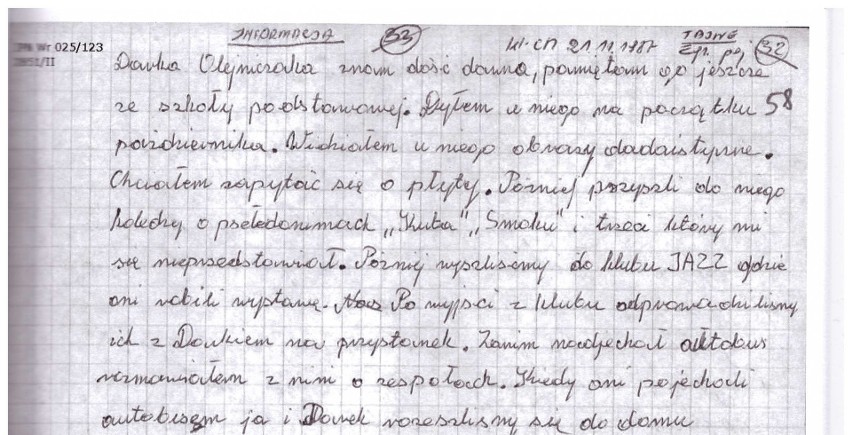 INFORMACJA 33 KL-CP 21.11.1987 TAJNE
IPN Wr 025/123 Egz. poj 32
2951/II
Darka Olejniczaka znam dość dawna, pamiętam go jeszcze
ze szkoły podstawowej. Byłem u niego na początku 58
października. Widziałem u niego obrazy dadaistyczne.
Chciałem zapytać się o płyty. Później przyszli do niego
koledzy o psełdonimach „Kuba" „Smoku" i trzeci który mi
się nieprzedstawiał. Później wyszliśmy do klubu JAZZ gdzie
oni robili wystawę. Po wyjści z klubu odprowadziliśmy
ich z Darkiem na przystanek. Zanim nadjechał autobus
rozmawiałem z nimi o zespołach. Kiedy oni pojechali
autobusem ja i Darek rozeszliśmy się do domu